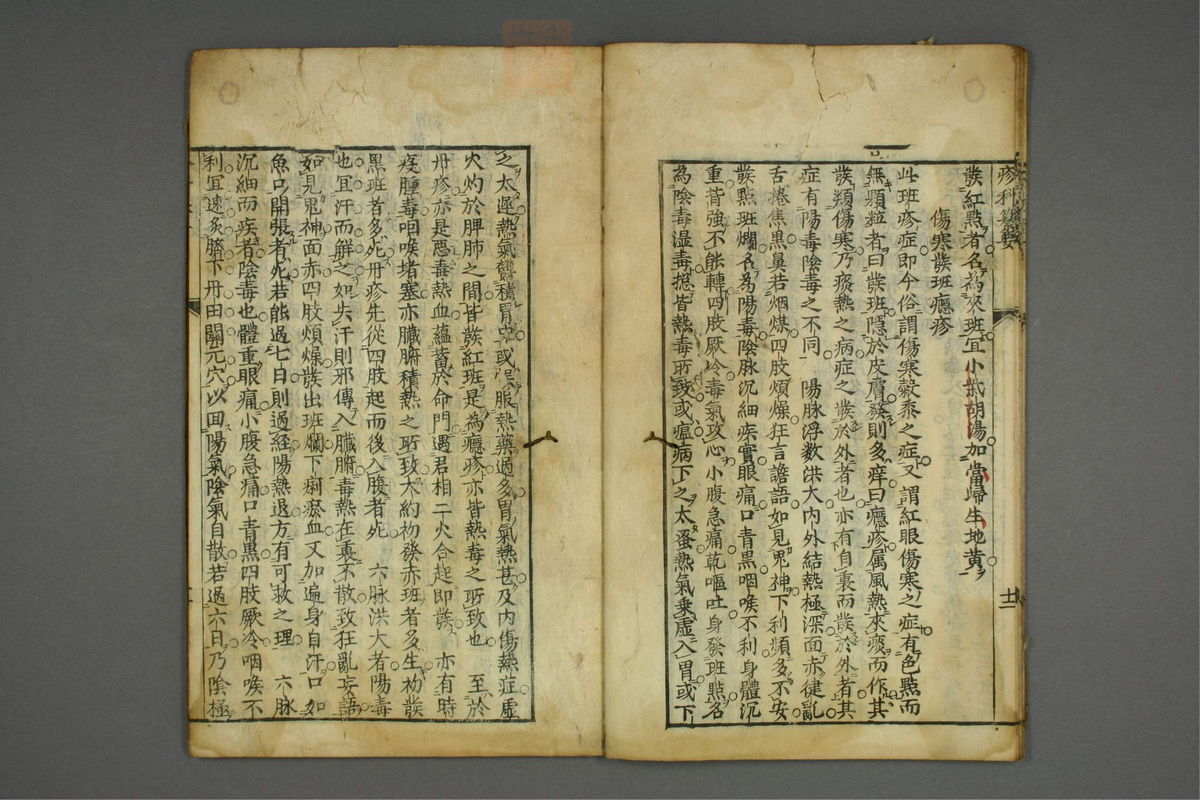 疹科纂要
十二
發紅㸃者名為夾班冝小柴胡湯加當歸生地黄
傷寒發班癮疹
此班疹症即今俗謂傷寒穀黍之症又謂紅眼傷寒之症有色㸃而
無顆粒者曰發班隱於皮膚發則多痒曰癮疹属風熱來痰而作其
發類傷寒乃痰熱之病症之發於外者也亦有自裏而發於外者其
症有陽毒隂毒之不同　陽脉浮数洪大内外結熱極深面赤律亂
舌捲焦黒鼻若烟煤四肢煩燥狂言譫語如見鬼神下利頻多不安
發㸃班爛名為陽毒隂脉沉細疾實眼痛口青黒咽喉不利身體沉
重皆強不能轉四肢厥冷毒氣攻心小腹急痛乾嘔吐身發班㸃名
為隂毒湿毒揔皆熱毒所致或瘟病下之太蚤熱氣乗虚入胃或下
之太遲熱氣欝積胃中或服熱藥過多胃氣熱甚及内傷熱症虚
火灼於脾肺之間皆發紅班是為癮疹亦皆熱毒之所致也　至於
丹疹亦是惡毒熱血蘊蓄於命門遇君相二火合起即發　亦有時
疫腫毒咽喉堵塞亦臓腑積熱之所致大約初發赤班者多生初發
黒班者多死丹疹先從四肢起而後入腹者死　六脉洪大者陽毒
也冝汗而解之如失汗則邪傳入臓腑毒熱在裏不散致狂亂妄語
如見鬼神面赤四肢煩燥發出班爛下痢瘀血又加遍身自汗口如
魚口開張者死若能過七日則過経陽熱退方有可救之理　六脉
沉細而疾者隂毒也體重眼痛小腹急痛口青黒四肢厥冷咽喉不
利冝速灸臍下丹田關元穴以回陽氣隂氣自散若過六日乃隂極